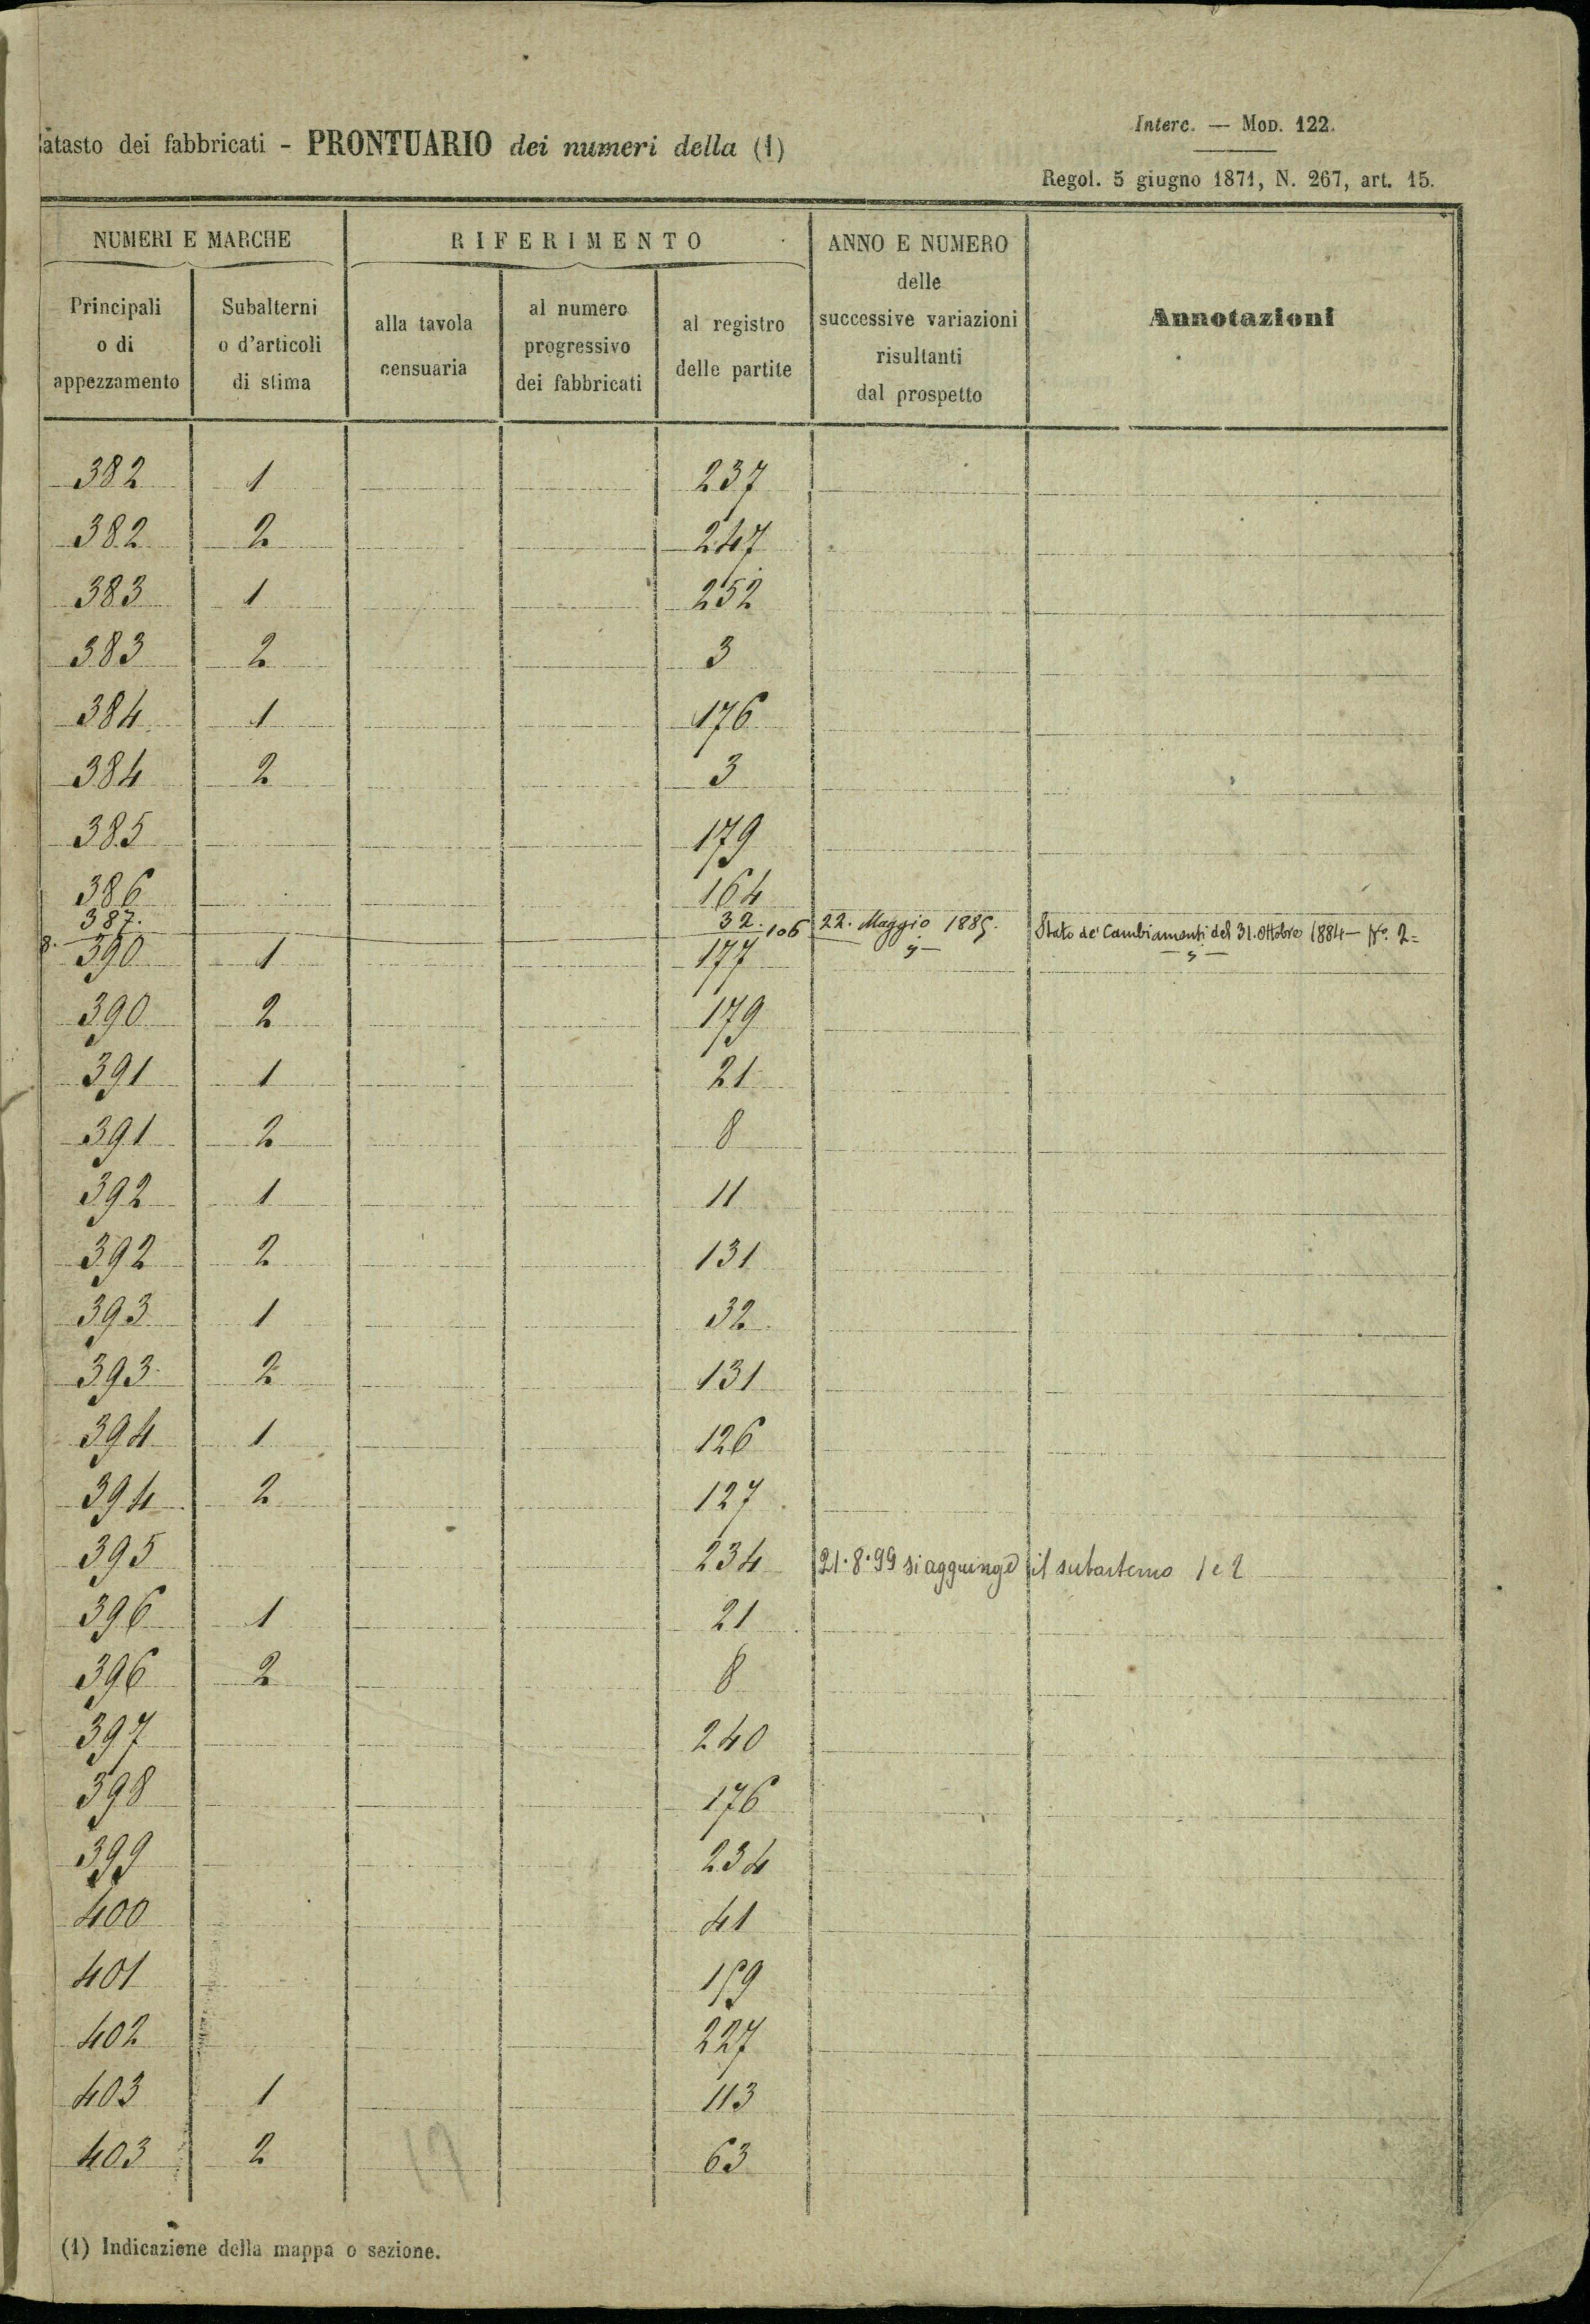 atasto dei fabbricati - PRONTUARIO dei numeri della (1)
Interc. — Mod. 122.
Regol. 5 giugno 1871, N. 267, art. 15.
NUMERI E MARCHE
RIFERIMENTO
ANNO E NUMERO
delle
successive variazioni
risultanti
dal prospetto
Annotazioni
Principali
o di
appezzamento
Subalterni
o d'articoli
di stima
alla tavola
censuaria
al numero
progressivo
dei fabbricati
al registro
delle partite
382 1 237
382 2 247
383 1 252
383 2 3
384 1 176
384 2 3
385 179
386 164
387. 32. 106 22. Maggio 1885. Stato de' Cambiamenti del 31. Ottobre 1884 — No. 2=
8. 390 1 177
390 2 179
391 1 21
391 2 8
392 1 11
392 2 131
393 1 32
393 2 131
394 1 126
394 2 127
395 234 21.8.99 si aggiunge il subarterno 1 e 2
396 1 21
396 2 8
397 240
398 176
399 234
400 41
401 159
402 227
403 1 113
403 2 63
17
(1) Indicazione della mappa o sezione.